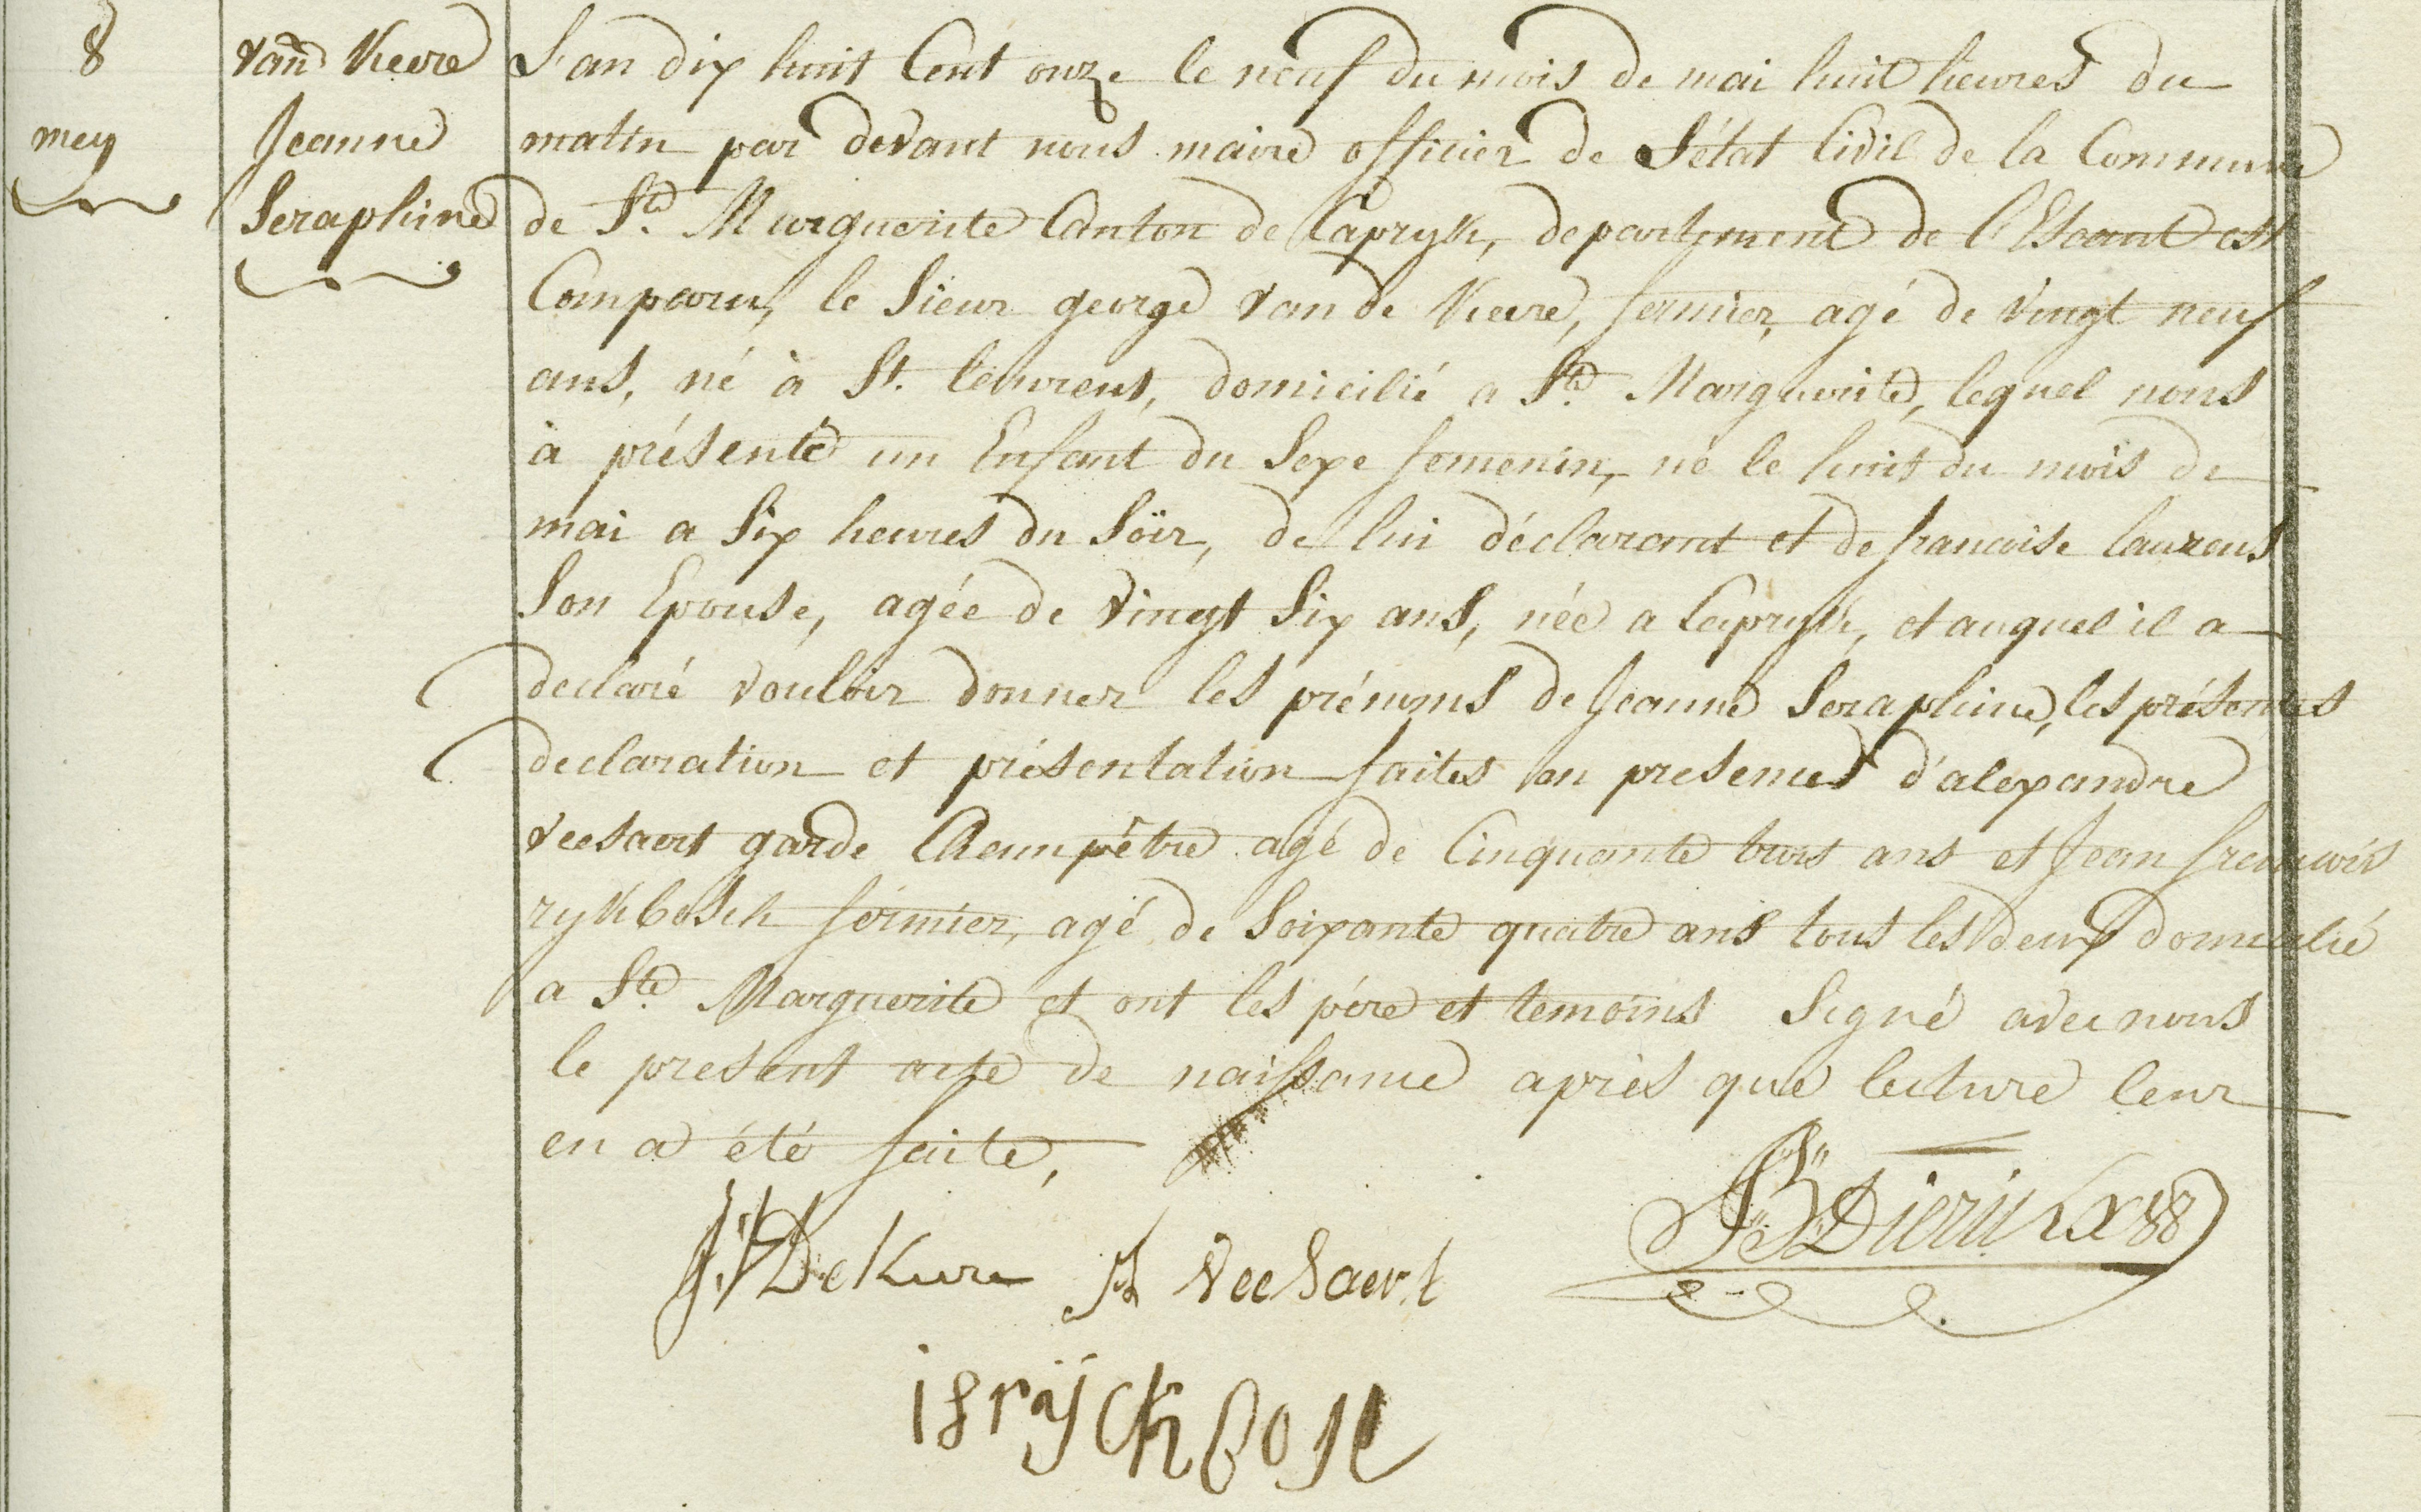 8
mey
van Keere
Jeanne
Seraphine
L'an dix huit Cent onze le neuf du mois de mai huit heures du
matin par devant nous maire officier de L'état Civil de la Commune
de Ste Marguerite Canton de Capryk, departement de l'Escaut est
Comparu, le Sieur george van de Keere, fermier, agé de vingt neuf
ans, né à St. laurent, domicilié a Ste Marguerite, lequel nous
à présenté un Enfant du Sexe femenin, né le huit du mois de
mai a Six heures du Soir, de lui déclarant et de francoise laurens
Son Epouse, agée de vingt Six ans, née a Capryk, et auquel il a
declaré vouloir donner les prénoms de Jeanne Seraphine, les présentes
declaration et présentation faites en presence d'alexandre
veesaert garde Champêtre agé de Cinquante trois ans et Jean francois
rykbosch fermier, agé de Soixante quatre ans tous les deux domicilié
a Ste Marguerite et ont les père et temoins Signé avec nous
le present acte de naissance après que lecture leur
en a été faite,
J. V De Keere A Veesaert
B Dierickx
is rÿckbose